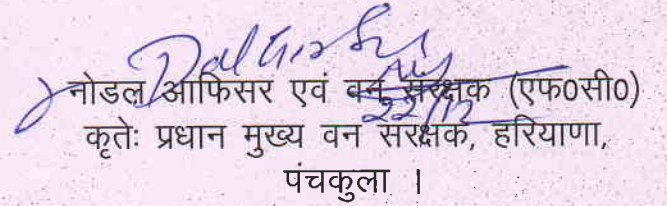 नोडल आफिसर एवं वन संरक्षक (एफ0सी0)
22/12
कृतेः प्रधान मुख्य वन संरक्षक, हरियाणा,
पंचकुला ।